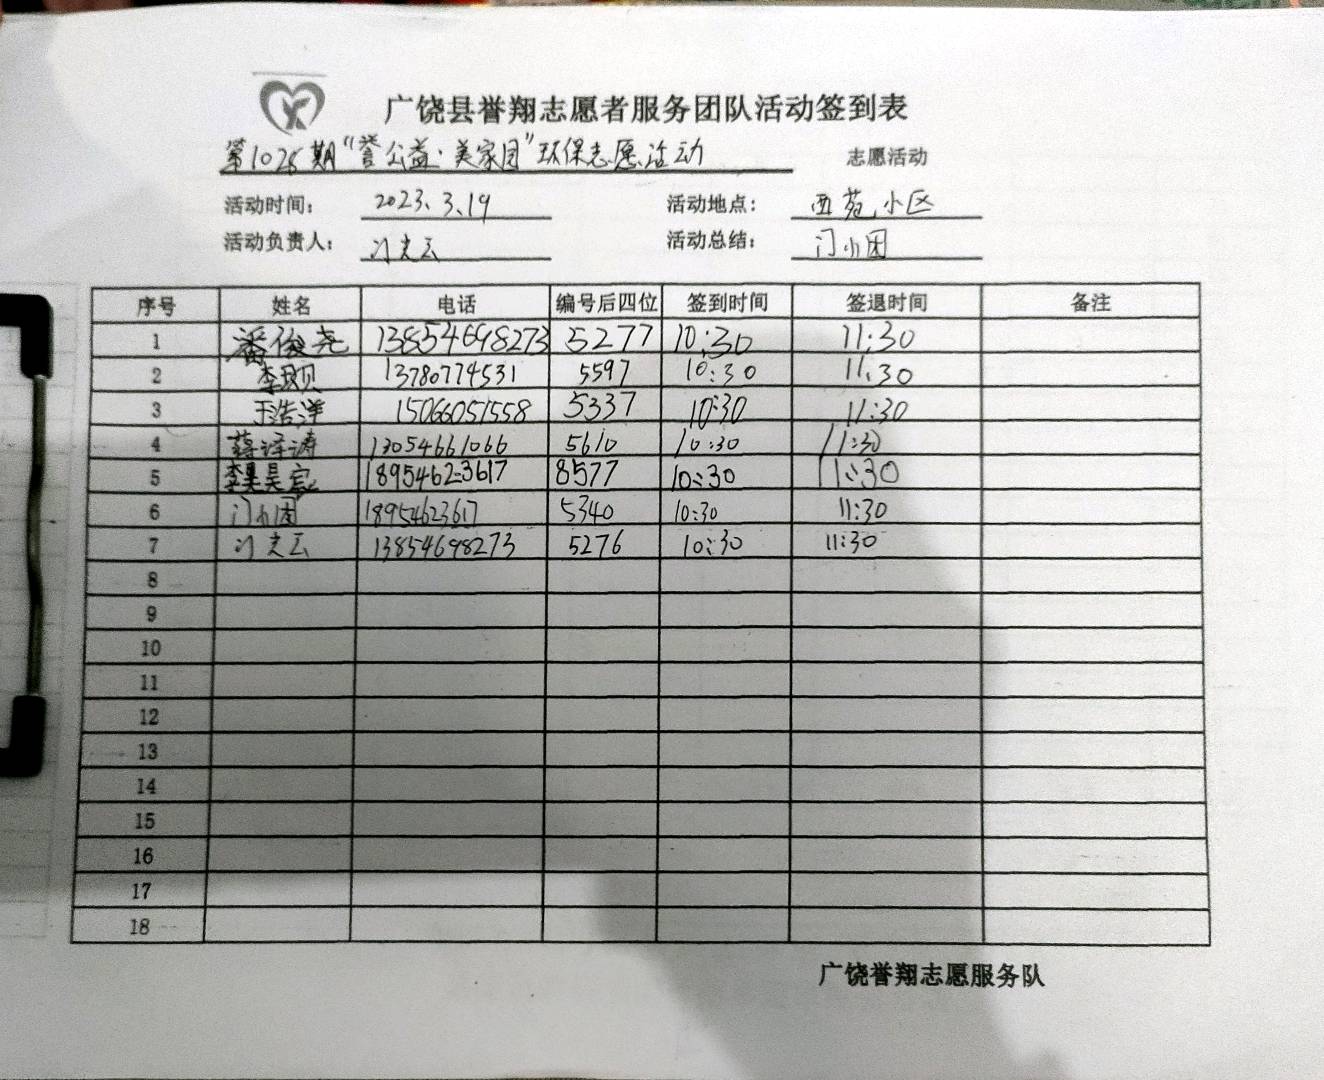 广饶县誉翔志愿者服务团队活动签到表
第1025期“誉公益·美家园”环保志愿活动 志愿活动
活动时间： 2023、3、19 活动地点： 西苑小区
活动负责人： 活动总结： 门小团
序号 姓名 电话 编号后四位 签到时间 签退时间 备注
1 潘俊尧 13854698273 5277 10:30 11:30
2 13780774531 5597 10:30 11:30
3 王浩洋 15066051558 5337 10:30 11:30
4 蒋泽涛 13054661066 5610 10:30 11:30
5 18954623617 8577 10:30 11:30
6 门小团 18954623617 5340 10:30 11:30
7 13854698273 5276 10:30 11:30
8
9
10
11
12
13
14
15
16
17
18
广饶誉翔志愿服务队